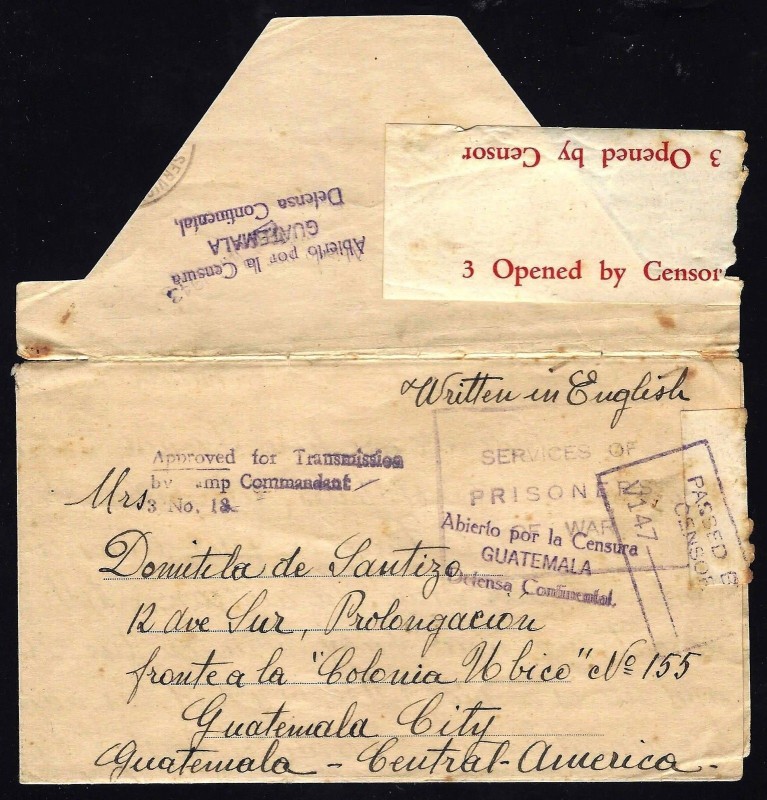 3 Opened by Censor
3 Opened by Censor
Abierto por la Censura
GUATEMALA
Defensa Continental,
Written in English
Approved for Transmission
by amp Commandant
3 No. 18
SERVICES OF
PRISONER
OF WAR
Abierto por la Censura
GUATEMALA
Defensa Continental.
PASSED B
CENSOR
V147
Mrs.
Domitila de Santizo
12 Ave Sur, Prolongacion
frente a la "Colonia Ubico" No 155
Guatemala City
Guatemala - Central-America-